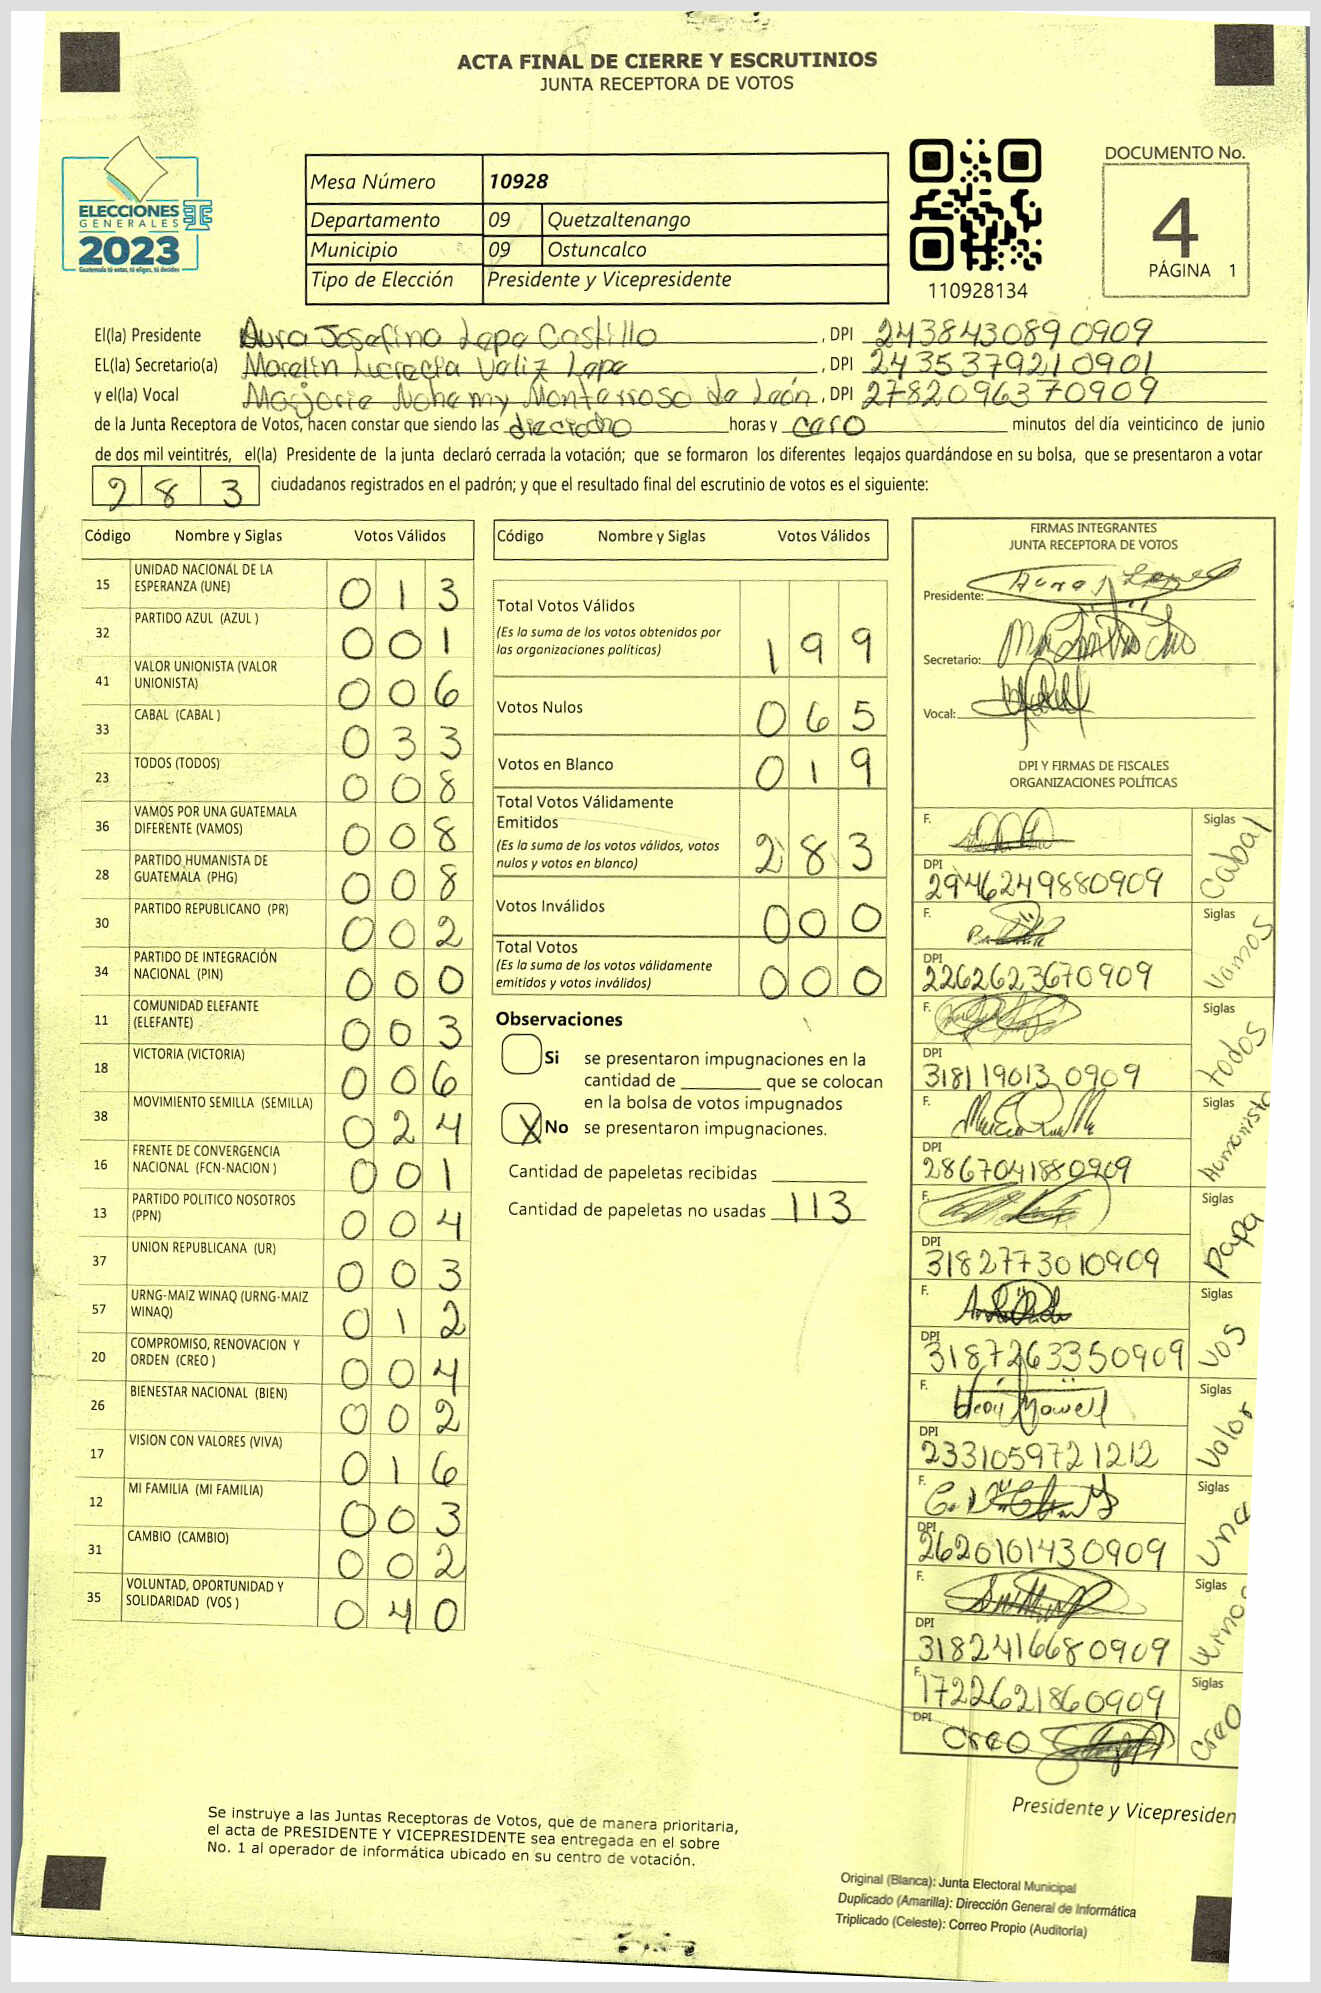 ACTA FINAL DE CIERRE Y ESCRUTINIOS
JUNTA RECEPTORA DE VOTOS
ELECCIONES
GENERALES
2023
Guatemala tú votas, tú eliges, tú decides
Mesa Número 10928
Departamento 09 Quetzaltenango
Municipio 09 Ostuncalco
Tipo de Elección Presidente y Vicepresidente
110928134
DOCUMENTO No.
4
PÁGINA 1
El(la) Presidente Aura Josefina Lope Castillo, DPI 2438430890909
EL(la) Secretario(a) Marelin Lucrecia Veliz Lope, DPI 2435379210901
y el(la) Vocal Marjorie Nohemy Monterroso de León, DPI 2782096370909
de la Junta Receptora de Votos, hacen constar que siendo las dieciocho horas y cero minutos del día veinticinco de junio
de dos mil veintitrés, el(la) Presidente de la junta declaró cerrada la votación; que se formaron los diferentes legajos guardándose en su bolsa, que se presentaron a votar
283 ciudadanos registrados en el padrón; y que el resultado final del escrutinio de votos es el siguiente:
Código Nombre y Siglas Votos Válidos
15 UNIDAD NACIONAL DE LA ESPERANZA (UNE) 013
32 PARTIDO AZUL (AZUL ) 001
41 VALOR UNIONISTA (VALOR UNIONISTA) 006
33 CABAL (CABAL ) 033
23 TODOS (TODOS) 008
36 VAMOS POR UNA GUATEMALA DIFERENTE (VAMOS) 008
28 PARTIDO HUMANISTA DE GUATEMALA (PHG) 008
30 PARTIDO REPUBLICANO (PR) 002
34 PARTIDO DE INTEGRACIÓN NACIONAL (PIN) 000
11 COMUNIDAD ELEFANTE (ELEFANTE) 003
18 VICTORIA (VICTORIA) 006
38 MOVIMIENTO SEMILLA (SEMILLA) 024
16 FRENTE DE CONVERGENCIA NACIONAL (FCN-NACION ) 001
13 PARTIDO POLITICO NOSOTROS (PPN) 004
37 UNION REPUBLICANA (UR) 003
57 URNG-MAIZ WINAQ (URNG-MAIZ WINAQ) 012
20 COMPROMISO, RENOVACION Y ORDEN (CREO ) 004
26 BIENESTAR NACIONAL (BIEN) 002
17 VISION CON VALORES (VIVA) 016
12 MI FAMILIA (MI FAMILIA) 003
31 CAMBIO (CAMBIO) 002
35 VOLUNTAD, OPORTUNIDAD Y SOLIDARIDAD (VOS ) 040
Código Nombre y Siglas Votos Válidos
Total Votos Válidos
(Es la suma de los votos obtenidos por las organizaciones políticas) 199
Votos Nulos 065
Votos en Blanco 019
Total Votos Válidamente Emitidos
(Es la suma de los votos válidos, votos nulos y votos en blanco) 283
Votos Inválidos 000
Total Votos
(Es la suma de los votos válidamente emitidos y votos inválidos) 000
Observaciones
Si se presentaron impugnaciones en la
cantidad de ________ que se colocan
en la bolsa de votos impugnados
X No se presentaron impugnaciones.
Cantidad de papeletas recibidas
Cantidad de papeletas no usadas 113
FIRMAS INTEGRANTES
JUNTA RECEPTORA DE VOTOS
Presidente:
Secretario:
Vocal:
DPI Y FIRMAS DE FISCALES
ORGANIZACIONES POLÍTICAS
F. Siglas Cabal
DPI 2946249880909
F. Siglas Vamos
DPI 2262623670909
F. Siglas todos
DPI 3181190130909
F. Siglas Humanista
DPI 2867041880909
F. Siglas papa
DPI 3182773010909
F. Siglas VOS
DPI 3187263350909
F. Siglas Valor
DPI 2331059721212
F. Siglas Une
DPI 2620101430909
F. Siglas
DPI 3182416680909
F. 1722621860909 Siglas Creo
DPI Creo
Presidente y Vicepresiden
Se instruye a las Juntas Receptoras de Votos, que de manera prioritaria,
el acta de PRESIDENTE Y VICEPRESIDENTE sea entregada en el sobre
No. 1 al operador de informática ubicado en su centro de votación.
Original (Blanca): Junta Electoral Municipal
Duplicado (Amarilla): Dirección General de Informática
Triplicado (Celeste): Correo Propio (Auditoría)